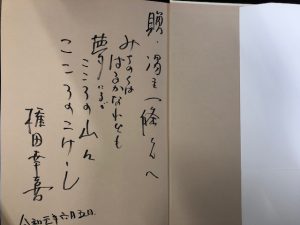 贈・湯主一條
みちのくは
はるかなれども
夢にまで
こころの山
こころのこけし
権田幸喜
令和元年六月五日